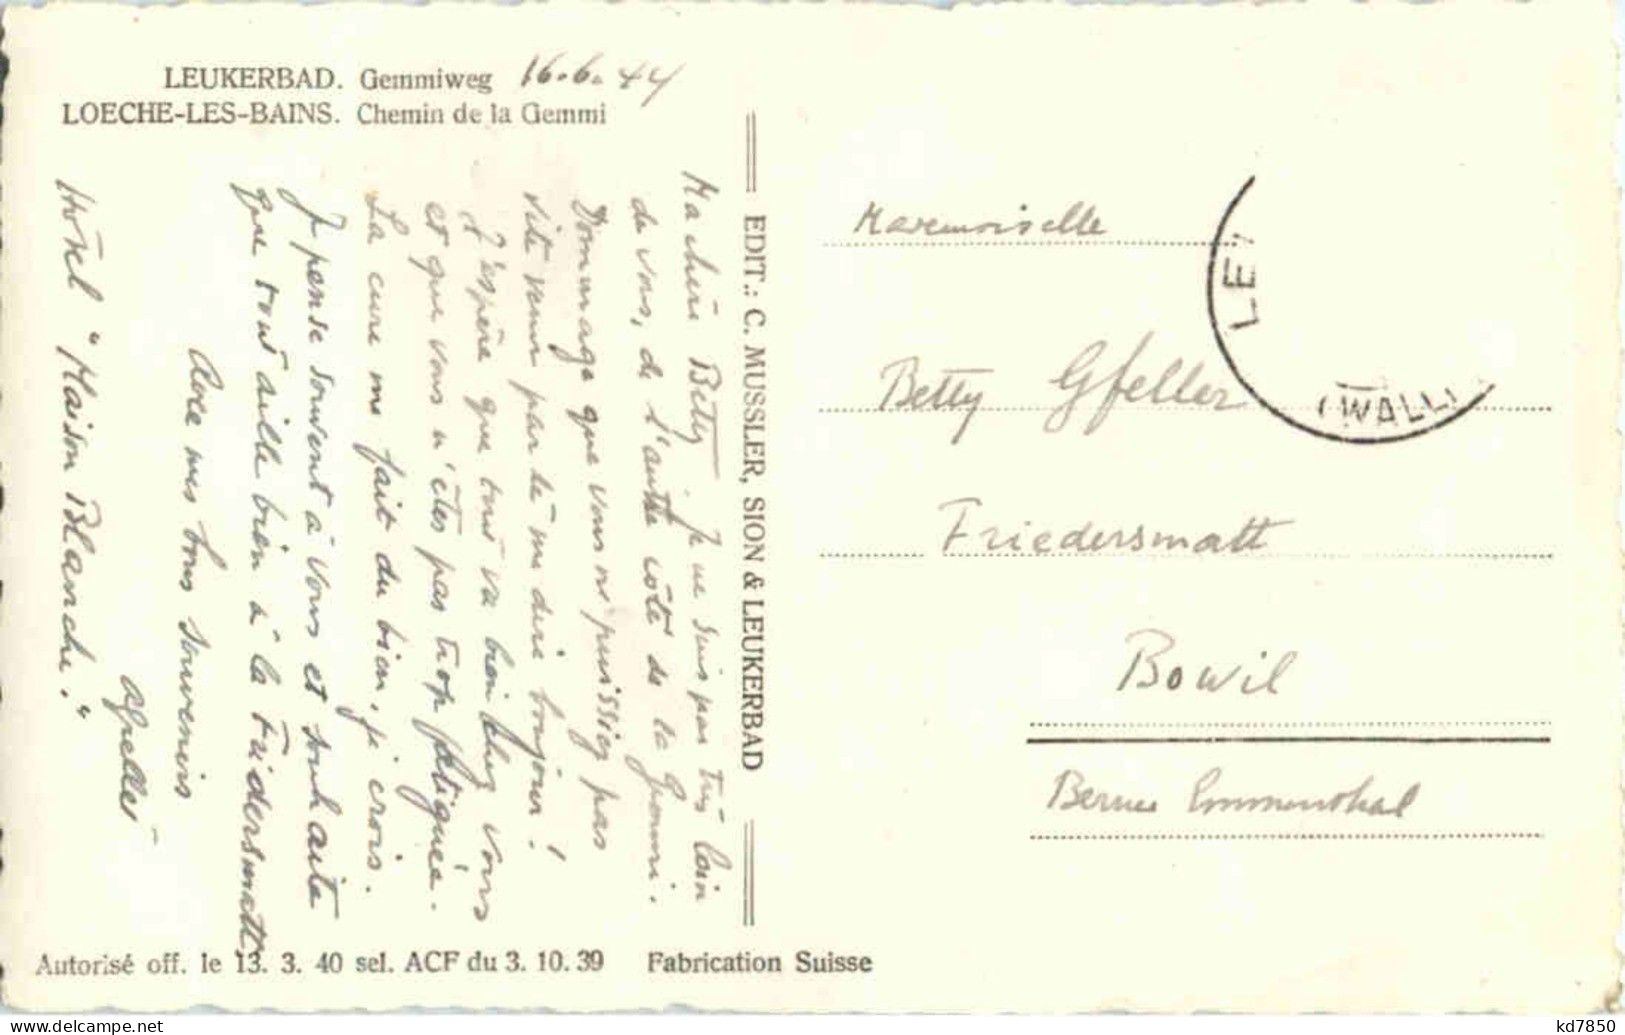 LEUKERBAD. Gemmiweg 16.6.44
LOECHE-LES-BAINS. Chemin de la Gemmi
Ma chère Betty. Je ne suis pas très loin
de vous, de l'autre côté de la Gemmi.
Dommage que vous ne puissiez pas
vite venir par là me dire bonjour!
J'espère que tout va bien chez vous
et que vous n'êtes pas trop fatiguée.
La cure me fait du bien, je crois.
Je pense souvent à vous et souhaite
que tout aille bien à la Friedersmatt.
Avec mes bons souvenirs
Hôtel "Maison Blanche."
EDIT.: C. MUSSLER, SION & LEUKERBAD
Mademoiselle
Betty Gfeller
Friedersmatt
Bowil
Berner Emmenthal
LEU
(WALLI
Autorisé off. le 13. 3. 40 sel. ACF du 3. 10. 39 Fabrication Suisse
kd7850